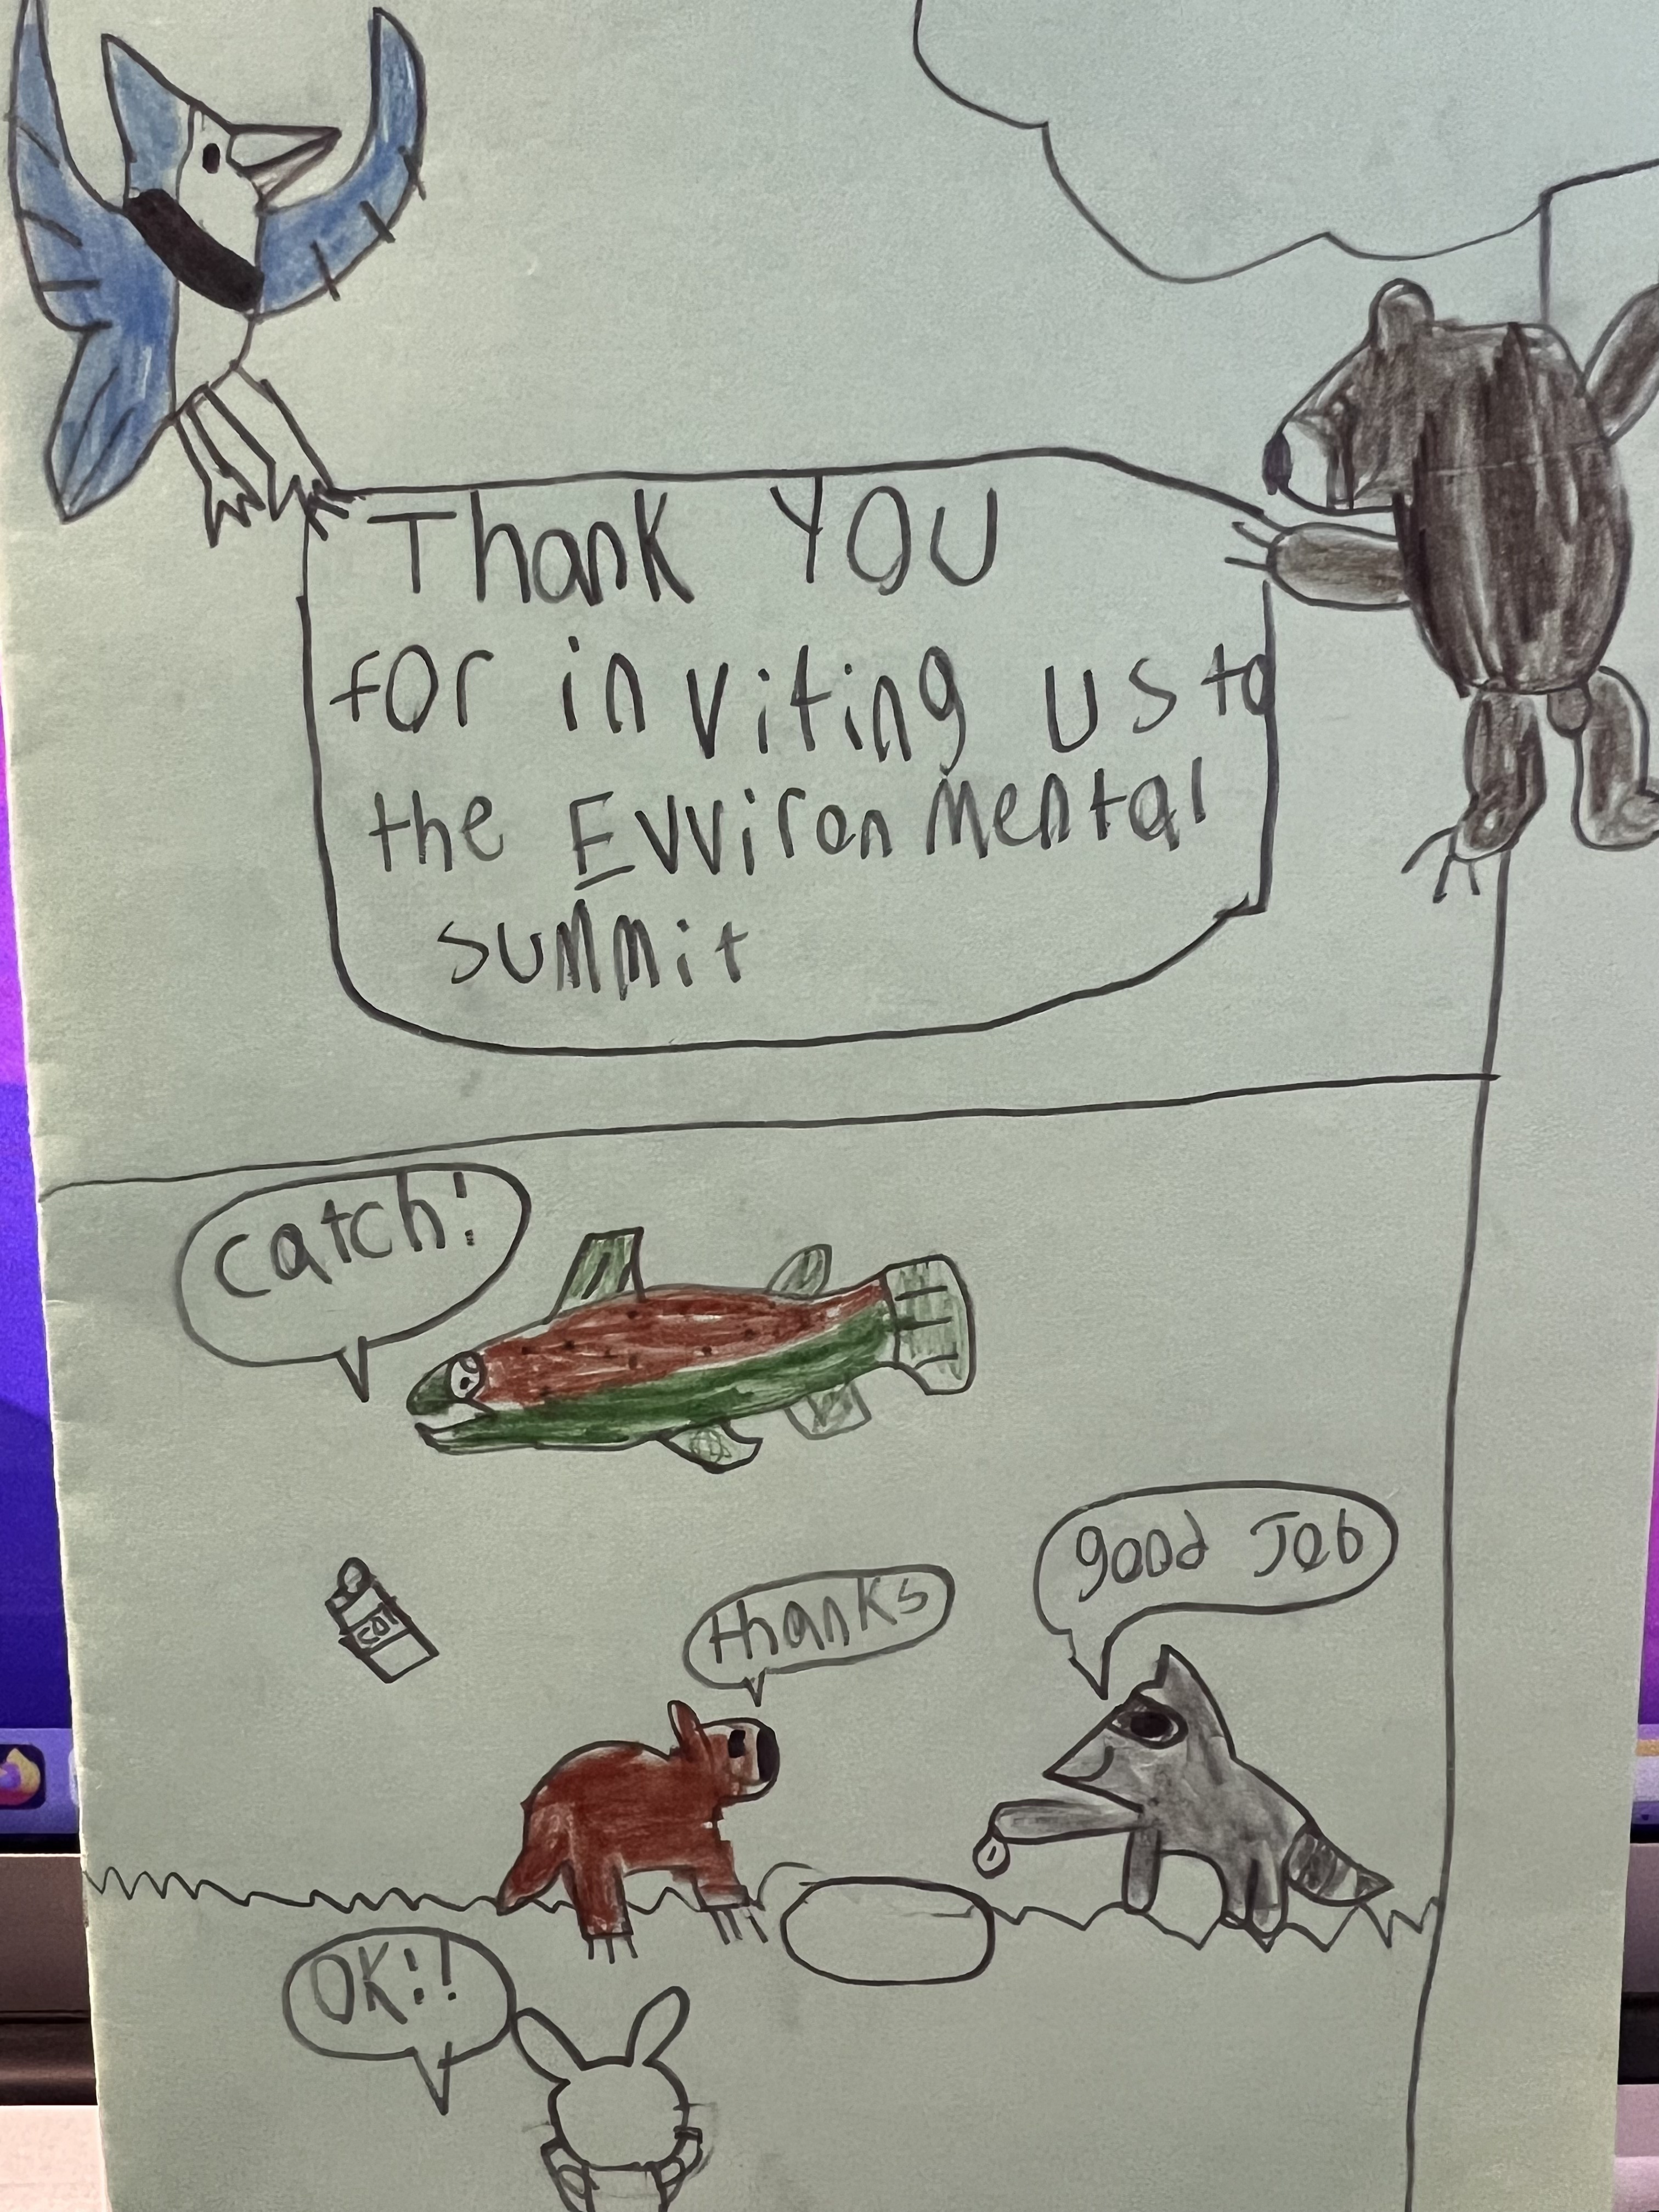 Thank YOU
for inviting us to
the Evviron mental
summit
catch!
thanks
good Job
OK!!